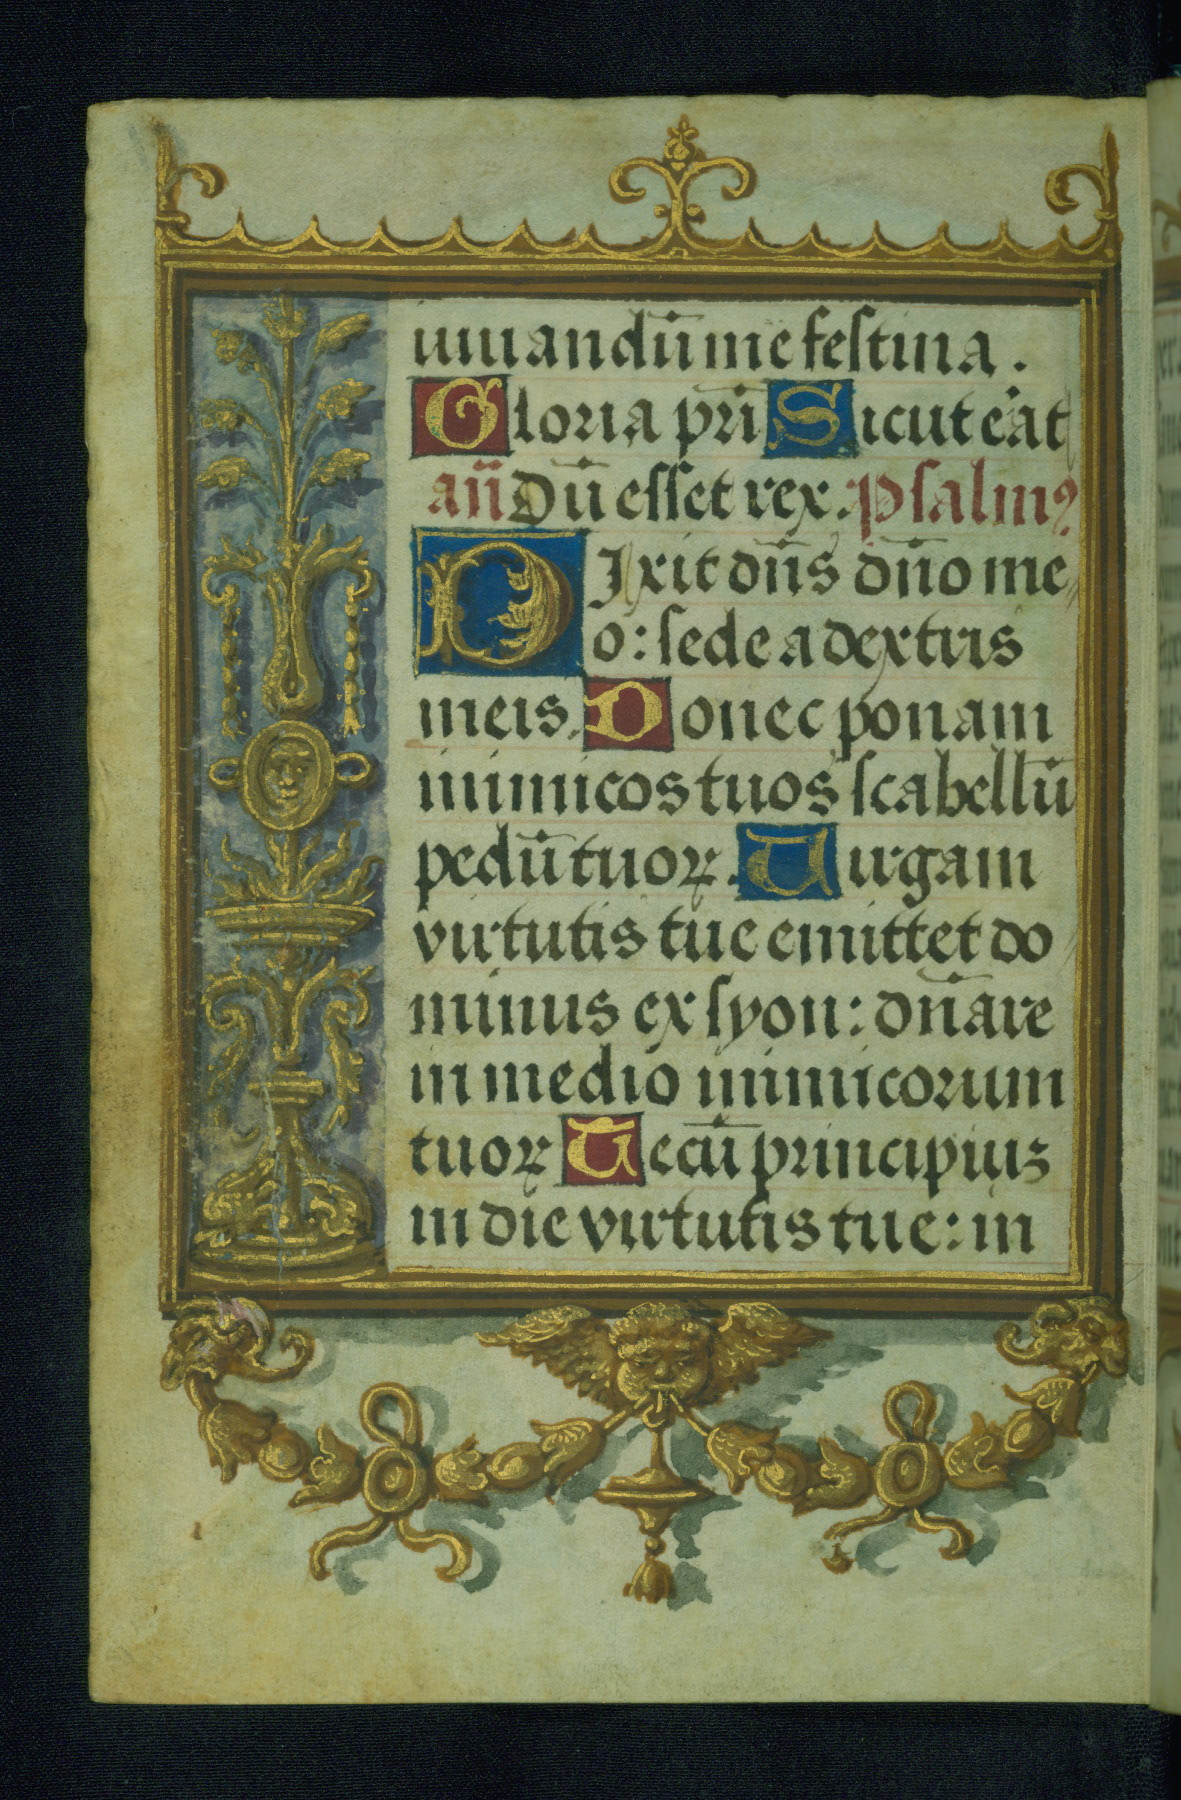 iuuandū me festina.
Gloria pr̄i Sicut erat
an̄ Dū esset rex. Psalmꝰ
Dixit dn̄s dn̄o me
o: sede a dextris
meis. Donec ponam
inimicos tuos scabellū
pedū tuoꝝ. Uirgam
virtutis tue emittet do
minus ex syon: dn̄are
in medio inimicorum
tuoꝝ Tecū principiuꝫ
in die virtutis tue: in